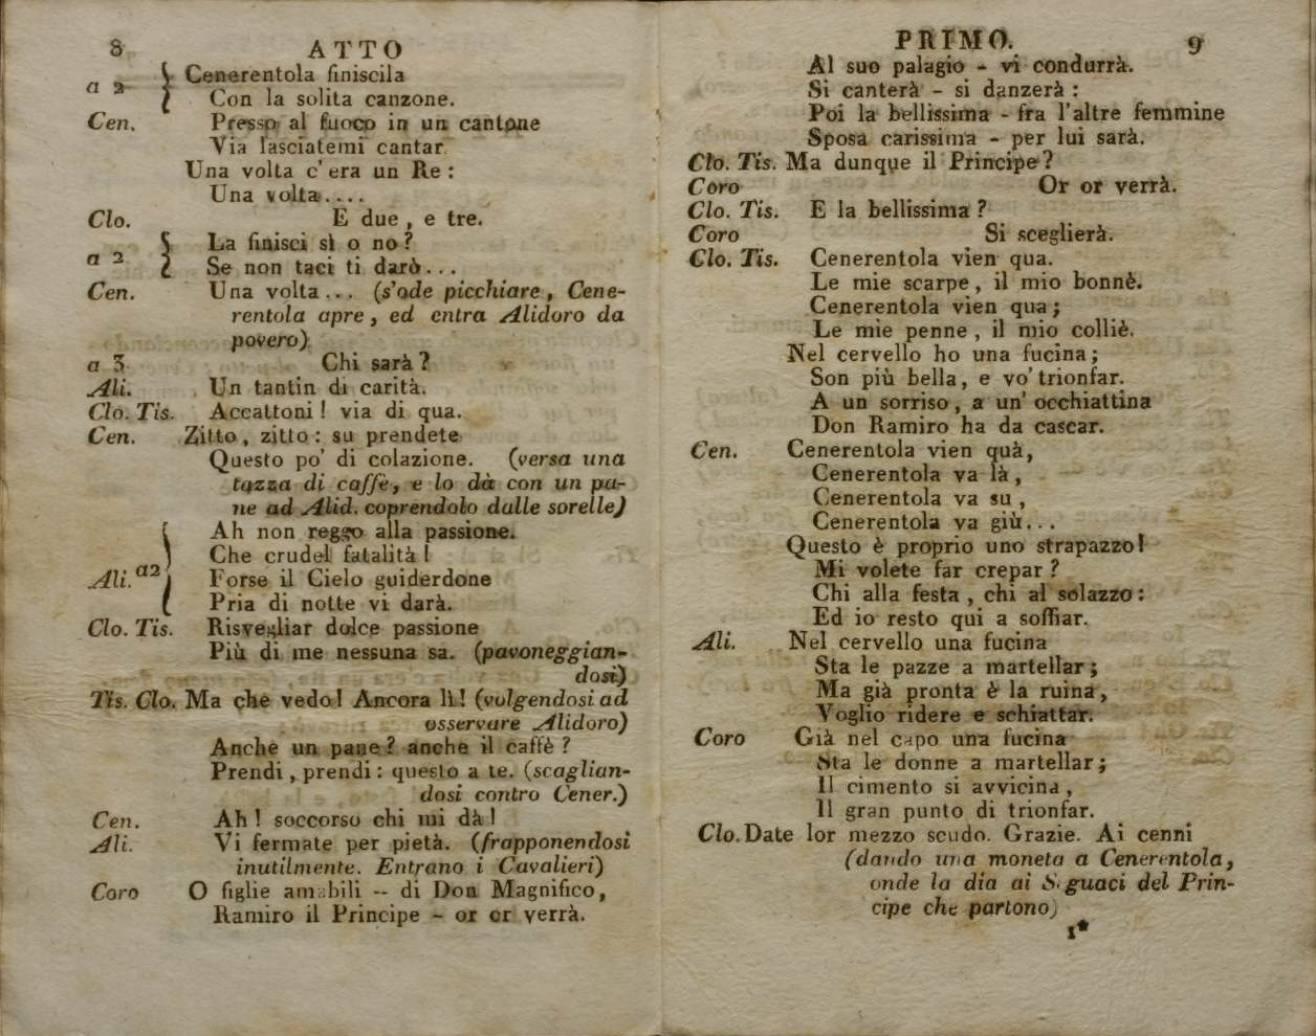 8 ATTO
a 2 { Cenerentola finiscila
Con la solita canzone.
Cen. Presso al fuoco in un cantone
Via lasciatemi cantar
Una volta c'era un Re :
Una volta....
Clo. E due , e tre.
a 2 { La finisci sì o no?
Se non taci ti darò...
Cen. Una volta... (s'ode picchiare, Cene-
rentola apre, ed entra Alidoro da
povero)
a 3 Chi sarà ?
Ali. Un tantin di carità.
Clo. Tis. Accattoni! via di qua.
Cen. Zitto, zitto : su prendete
Questo po' di colazione. (versa una
tazza di caffè, e lo dà con un pa-
ne ad Alid. coprendolo dalle sorelle)
Ah non reggo alla passione.
Che crudel fatalità !
Ali. a2 { Forse il Cielo guiderdone
Pria di notte vi darà.
Clo. Tis. Risvegliar dolce passione
Più di me nessuna sa. (pavoneggian-
dosi)
Tis. Clo. Ma che vedo! Ancora lì! (volgendosi ad
osservare Alidoro)
Anche un pane ? anche il caffè ?
Prendi, prendi : questo a te. (scaglian-
dosi contro Cener.)
Cen. Ah ! soccorso chi mi dà !
Ali. Vi fermate per pietà. (frapponendosi
inutilmente. Entrano i Cavalieri)
Coro O figlie amabili -- di Don Magnifico,
Ramiro il Principe - or or verrà.
PRIMO. 9
Al suo palagio - vi condurrà.
Si canterà - si danzerà :
Poi la bellissima - fra l'altre femmine
Sposa carissima - per lui sarà.
Clo. Tis. Ma dunque il Principe ?
Coro Or or verrà.
Clo. Tis. E la bellissima ?
Coro Si sceglierà.
Clo. Tis. Cenerentola vien qua.
Le mie scarpe, il mio bonnè.
Cenerentola vien qua ;
Le mie penne, il mio colliè.
Nel cervello ho una fucina ;
Son più bella, e vo' trionfar.
A un sorriso, a un' occhiattina
Don Ramiro ha da cascar.
Cen. Cenerentola vien quà,
Cenerentola va là,
Cenerentola va su,
Cenerentola va giù...
Questo è proprio uno strapazzo !
Mi volete far crepar ?
Chi alla festa, chi al solazzo :
Ed io resto qui a soffiar.
Ali. Nel cervello una fucina
Sta le pazze a martellar ;
Ma già pronta è la ruina,
Voglio ridere e schiattar.
Coro Già nel capo una fucina
Sta le donne a martellar ;
Il cimento si avvicina,
Il gran punto di trionfar.
Clo. Date lor mezzo scudo. Grazie. Ai cenni
(dando una moneta a Cenerentola,
onde la dia ai Seguaci del Prin-
cipe che partono)
1*